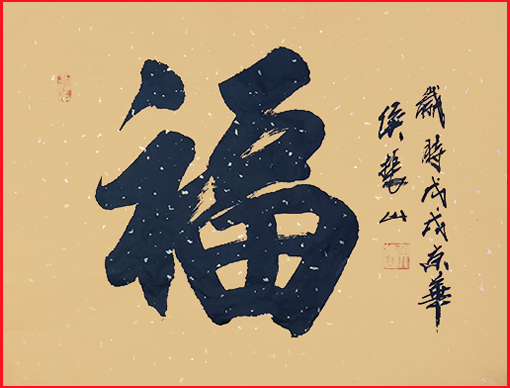 福
歲時戊戌京華
侯山